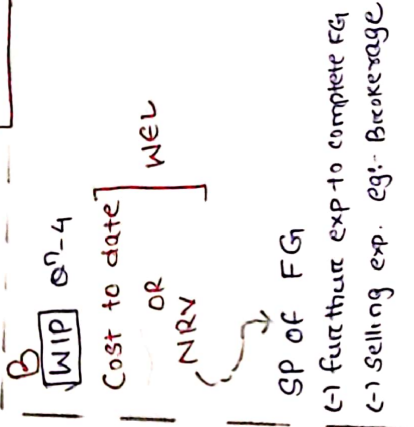 B
WIP Qn-4
Cost to date
OR
NRV
WEL
SP of FG
(-) furthure exp to complete FG
(-) Selling exp. eg:- Brokerage